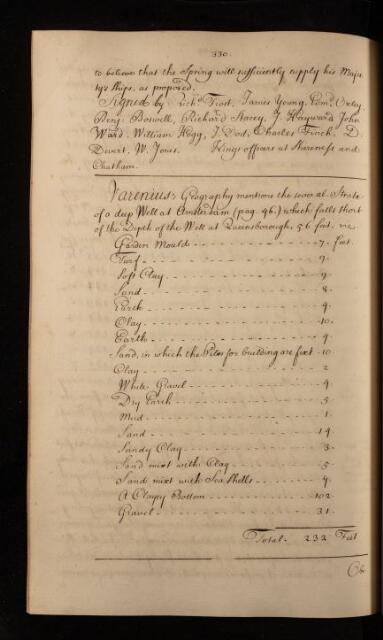 330.
to believe that the Spring will sufficiently supply his Majes
ty's Ships, as proposed.
Signed by Rich.d Frost, James Young, Edm.d
Benj: Boswell, Richard Stacey, J. Hayward John
Ward, William Hogg, J. Dod, Charles Finch, D.
W. Jones. Kings officers at Sheerness and
Chatham.
Varenius's Geography mentions the several Strata
of a deep Well at Amsterdam (pag. 46.) which falls short
of the Depth of the Well at Queensborough, 56 feet. viz
Garden Mould - - - 7. feet.
Turf - - - 9.
Soft Clay - - - 9.
Sand - - - 8.
Earth - - - 4.
Clay - - - 10.
Earth - - - 4.
Sand, in which the Piles for building are fixt - 10.
Clay - - - 2
White Gravel - - - 4.
Dry Earth - - - 5
Mud - - - 1.
Sand - - - 14.
Sandy Clay - - - 3.
Sand mixt with Clay - - - 5
Sand mixt with Sea Shells - - - 4.
A Clayey Bottom - - - 102
Gravel - - - 31.
Total - 232 Feet